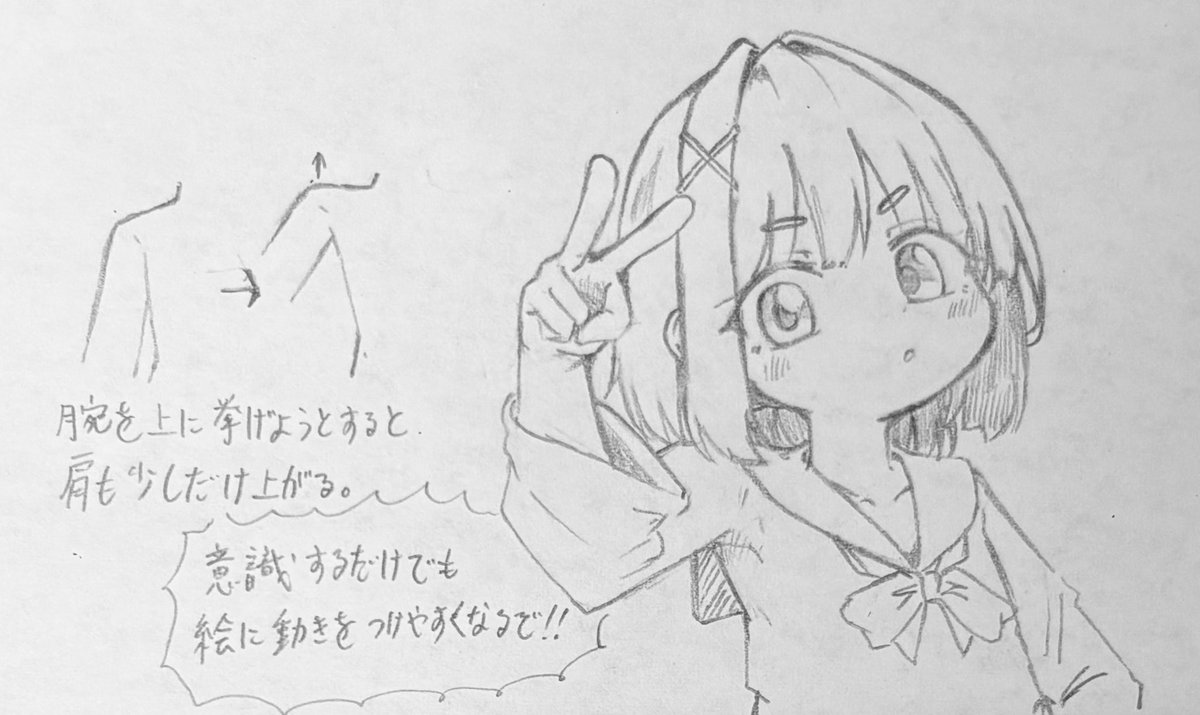 腕を上に挙げようとすると
肩も少しだけ上がる。
意識するだけでも
絵に動きをつけやすくなるで!!